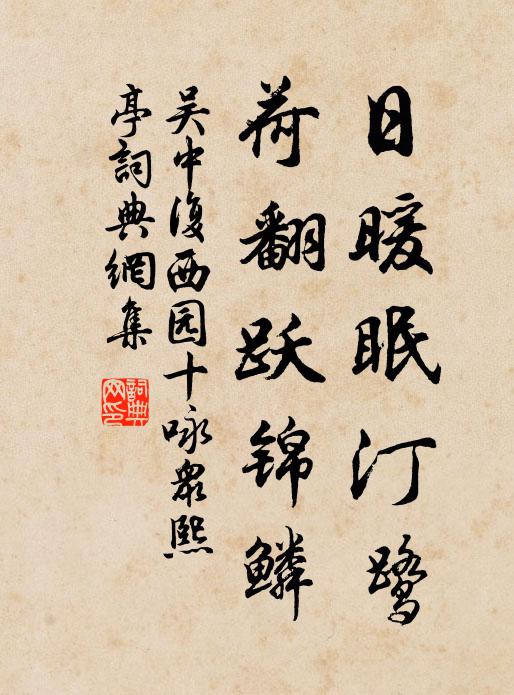 日暖眠汀鹭
荷翻跃锦鳞
吴中復西园十咏众熙
亭詞典網集
詞典网印